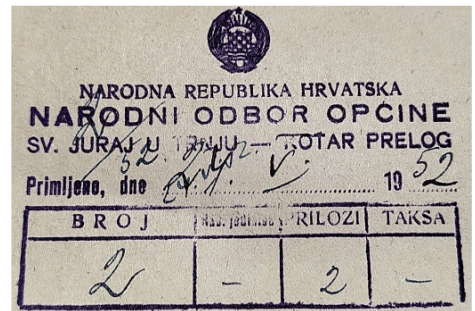 NARODNA REPUBLIKA HRVATSKA
NARODNI ODBOR OPĆINE
SV. JURAJ U TRNJU — KOTAR PRELOG
Primljeno, dne V. 1952
BROJ PRILOZI TAKSA
2 - 2 -